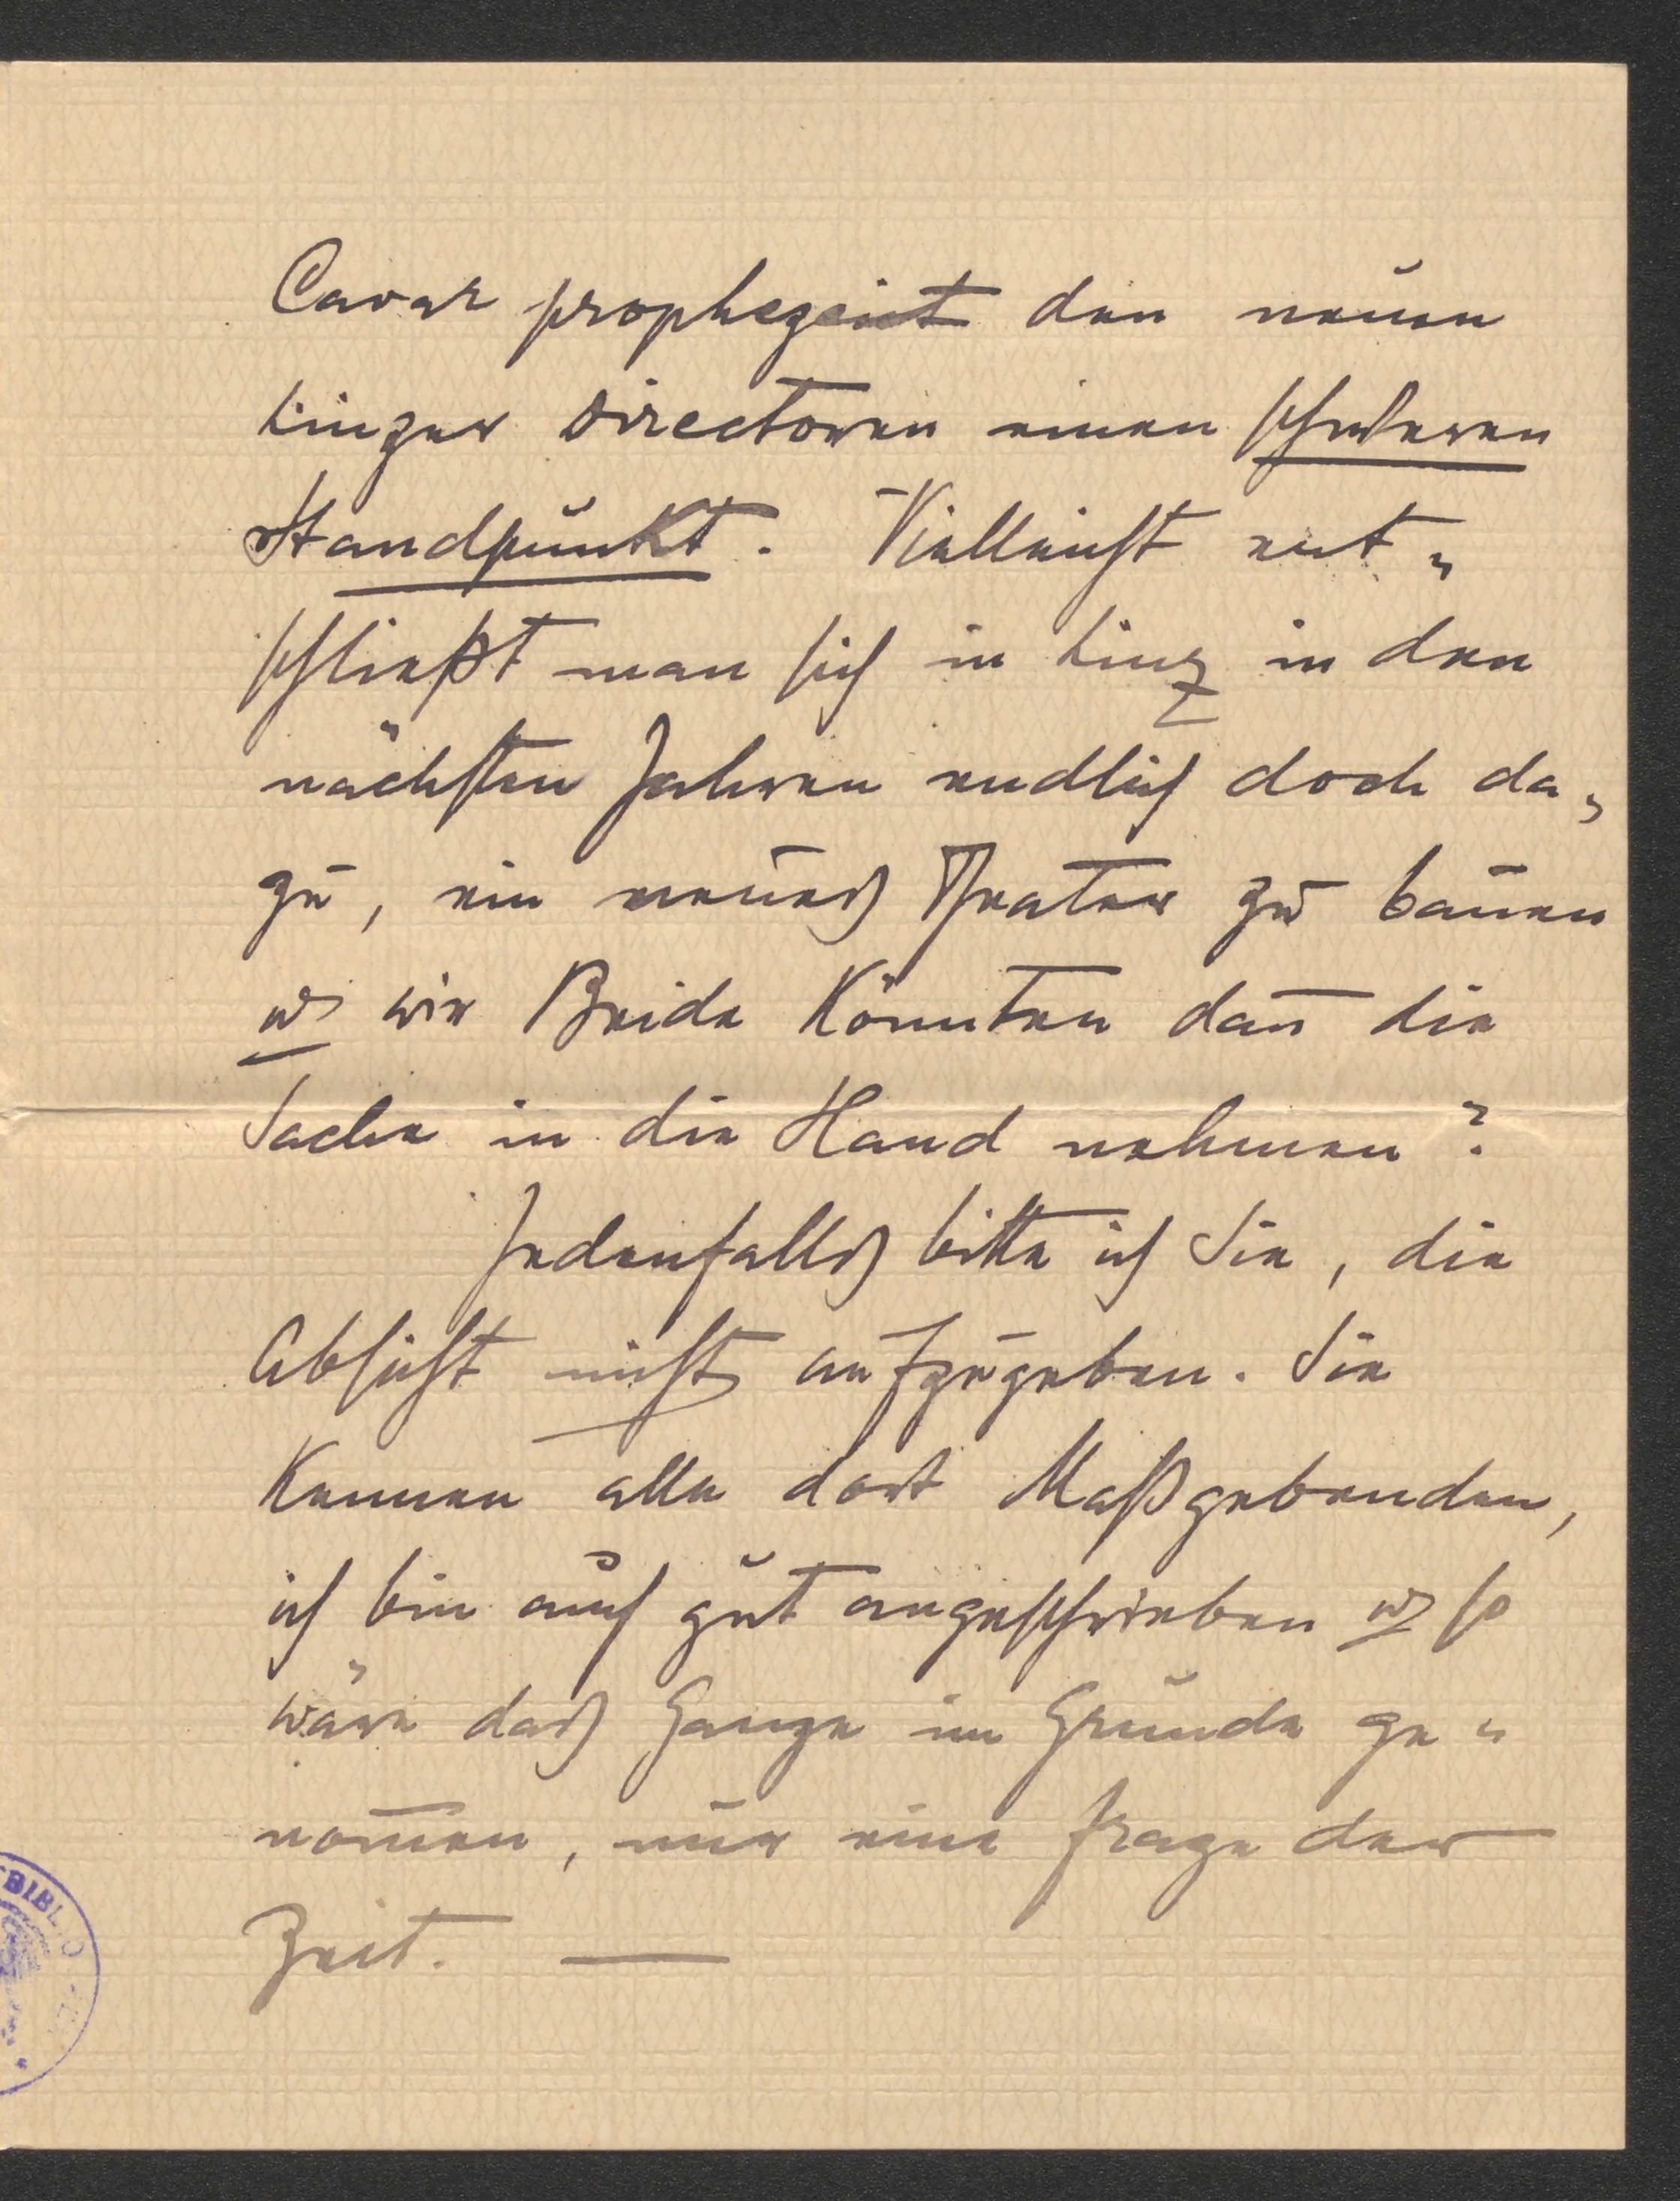 Cavar prophezeit den neuen
Linzer Directoren einen schweren
Standpunkt. Vielleicht ent„
schließt man sich in Linz in den
nächsten Jahren endlich doch da„
zu, ein neues Theater zu bauen
u wir Beide könnten dan̅ die
Sache in die Hand nehmen?
Jedenfalls bitte ich Sie, die
Absicht nicht aufzugeben. Sie
kennen alle dort Maßgebenden,
ich bin auch gut angeschrieben u so
wäre das Ganze im Grunde ge„
nom̅en, nur eine Frage der
Zeit. —
BIBLIO